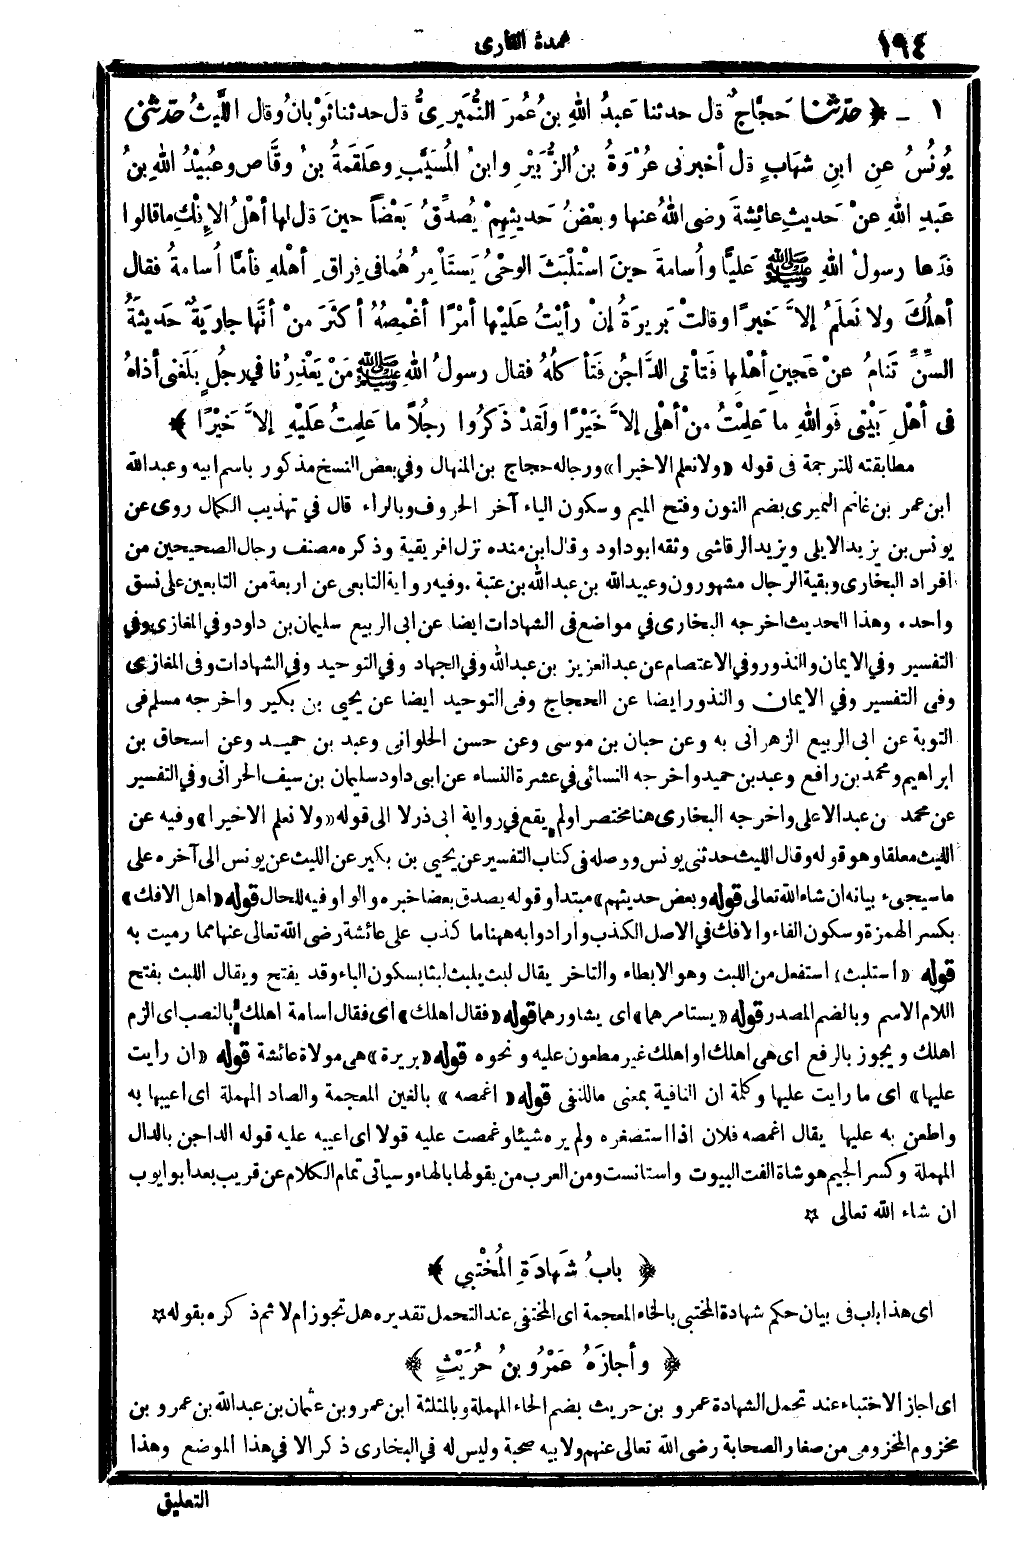 ١٩٤
عمدة القارى
١ - ﴿ حدّثنا حَجَّاجٌ قال حدثنا عَبدُ اللهِ بنُ عُمَرَ النُّمَيرِىُّ قال حدثنا ثَوْبانُ وقال اللَّيثُ حدّثنى
يُونُسُ عنِ ابنِ شهابٍ قال أخبرنى عُرْوَةُ بنُ الزُّبَيْرِ وابنُ المُسَيَّبِ وعَلقَمَةُ بنُ وقَّاصٍ وعُبيْدُ اللهِ بنُ
عَبدِ اللهِ عنْ حَديثِ عائِشةَ رضى اللهُ عنها وبعْضُ حَديثِهِمْ يُصدِّقُ بَعْضاً حينَ قال لها أهْلُ الإِفْكِ ما قالوا
فدَعا رسولُ اللهِ ﷺ عَليًّا وأُسامةَ حينَ اسْتَلْبَثَ الوحْىُ يَستَأْمِرُهُما فى فِراقِ أهْلهِ فأمَّا أُسامةُ فقال
أهلُكَ ولا نَعلَمُ إلاَّ خَيرًا وقالتْ بَرِيرَةُ إنْ رأيْتُ عَلَيْها أمْرًا أغْمِصُهُ أكثَرَ مِنْ أنَّها جارِيَةٌ حَدِيثَةُ
السِّنِّ تَنامُ عنْ عَجِينِ أهْلِها فَتأتى الدَّاجِنُ فَتأكلُهُ فقال رسولُ اللهِ ﷺ مَنْ يَعْذِرُنا في رجُلٍ بَلَغَنى أذاهُ
فى أهْلِ بَيْتِى فَواللهِ ما عَلِمْتُ مِنْ أهْلى إلاَّ خَيْرًا ولَقدْ ذَكَرُوا رجُلاً ما عَلِمتُ عَلَيْهِ إلاَّ خَيْرًا ﴾
مطابقته للترجمة فى قوله «ولا نعلم الا خيرا» ورجاله حجاج بن المنهال وفي بعض النسخ مذكور باسم ابيه وعبدالله
ابن عمر بن غانم النميرى بضم النون وفتح الميم وسكون الياء آخر الحروف وبالراء قال في تهذيب الكمال روى عن
يونس بن يزيد الايلى ويزيد الرقاشى وثقه ابو داود وقال ابن منده نزل افريقية وذكره مصنف رجال الصحيحين من
افراد البخارى وبقية الرجال مشهورون وعبيد الله بن عبد الله بن عتبة . وفيه رواية التابعى عن اربعة من التابعين على نسق
واحد . وهذا الحديث اخرجه البخارى في مواضع فى الشهادات ايضا عن ابى الربيع سليمان بن داود وفي المغازى وفي
التفسير وفي الايمان والنذور وفي الاعتصام عن عبد العزيز بن عبد الله وفي الجهاد وفي التوحيد وفي الشهادات وفى المغازى
وفى التفسير وفي الايمان والنذور ايضا عن الحجاج وفى التوحيد ايضا عن يحيى بن بكير واخرجه مسلم فى
التوبة عن ابى الربيع الزهرانى به وعن حبان بن موسى وعن حسن الحلوانى وعبد بن حميد وعن اسحاق بن
ابراهيم ومحمد بن رافع وعبد بن حميد واخرجه النسائى في عشرة النساء عن ابى داود سليمان بن سيف الحرانى وفي التفسير
عن محمد بن عبد الاعلى واخرجه البخارى هنا مختصرا ولم يقع في رواية ابى ذر لا الى قوله «ولا نعلم الا خيرا» وفيه عن
الليث معلقا وهو قوله وقال الليث حدثنى يونس ووصله فى كتاب التفسير عن يحيى بن بكير عن الليث عن يونس الى آخره على
ما سيجىء بيانه ان شاء الله تعالى قوله «وبعض حديثهم» مبتدأ وقوله يصدق بعضا خبره والواو فيه للحال قوله «اهل الافك»
بكسر الهمزة وسكون الفاء والافك في الاصل الكذب وارادوا به ههنا ما كذب على عائشة رضى الله تعالى عنها مما رميت به
قوله «استلبث» استفعل من اللبث وهو الابطاء والتاخر يقال لبث يلبث لبثا بسكون الباء وقد يفتح ويقال اللبث بفتح
اللام الاسم وبالضم المصدر قوله «يستامرهما» اى يشاورهما قوله «فقال اهلك» اى فقال اسامة اهلك بالنصب اى الزم
اهلك ويجوز بالرفع اى هى اهلك او اهلك غير مطعون عليه ونحوه قوله «بريرة» هى مولاة عائشة قوله «ان رايت
عليها» اى ما رايت عليها وكلمة ان النافية بمعنى ما للنفى قوله «اغمصه» بالغين المعجمة والصاد المهملة اى اعيبها به
واطعن به عليها يقال اغمصه فلان اذا استصغره ولم يره شيئا وغمصت عليه قولا اى اعيبه عليه قوله الداجن بالدال
المهملة وكسر الجيم هو شاة الفت البيوت واستانست ومن العرب من يقولها بالهاء وسياتى تمام الكلام عن قريب بعد ابو ايوب
ان شاء الله تعالى ☆
﴿ بابُ شَهادَةِ المُخْتبِي ﴾
اى هذا باب فى بيان حكم شهادة المختبى بالخاء المعجمة اى المختفى عند التحمل تقديره هل تجوز ام لا ثم ذكره بقوله ☆
﴿ وأجازَهُ عَمْرُو بنُ حُرَيْثٍ ﴾
اى اجاز الاختباء عند تحمل الشهادة عمرو بن حريث بضم الحاء المهملة وبالمثلثة ابن عمرو بن عثمان بن عبد الله بن عمرو بن
مخزوم المخزومى من صغار الصحابة رضى الله تعالى عنهم ولابيه صحبة وليس له في البخارى ذكر الا في هذا الموضع وهذا
التعليق